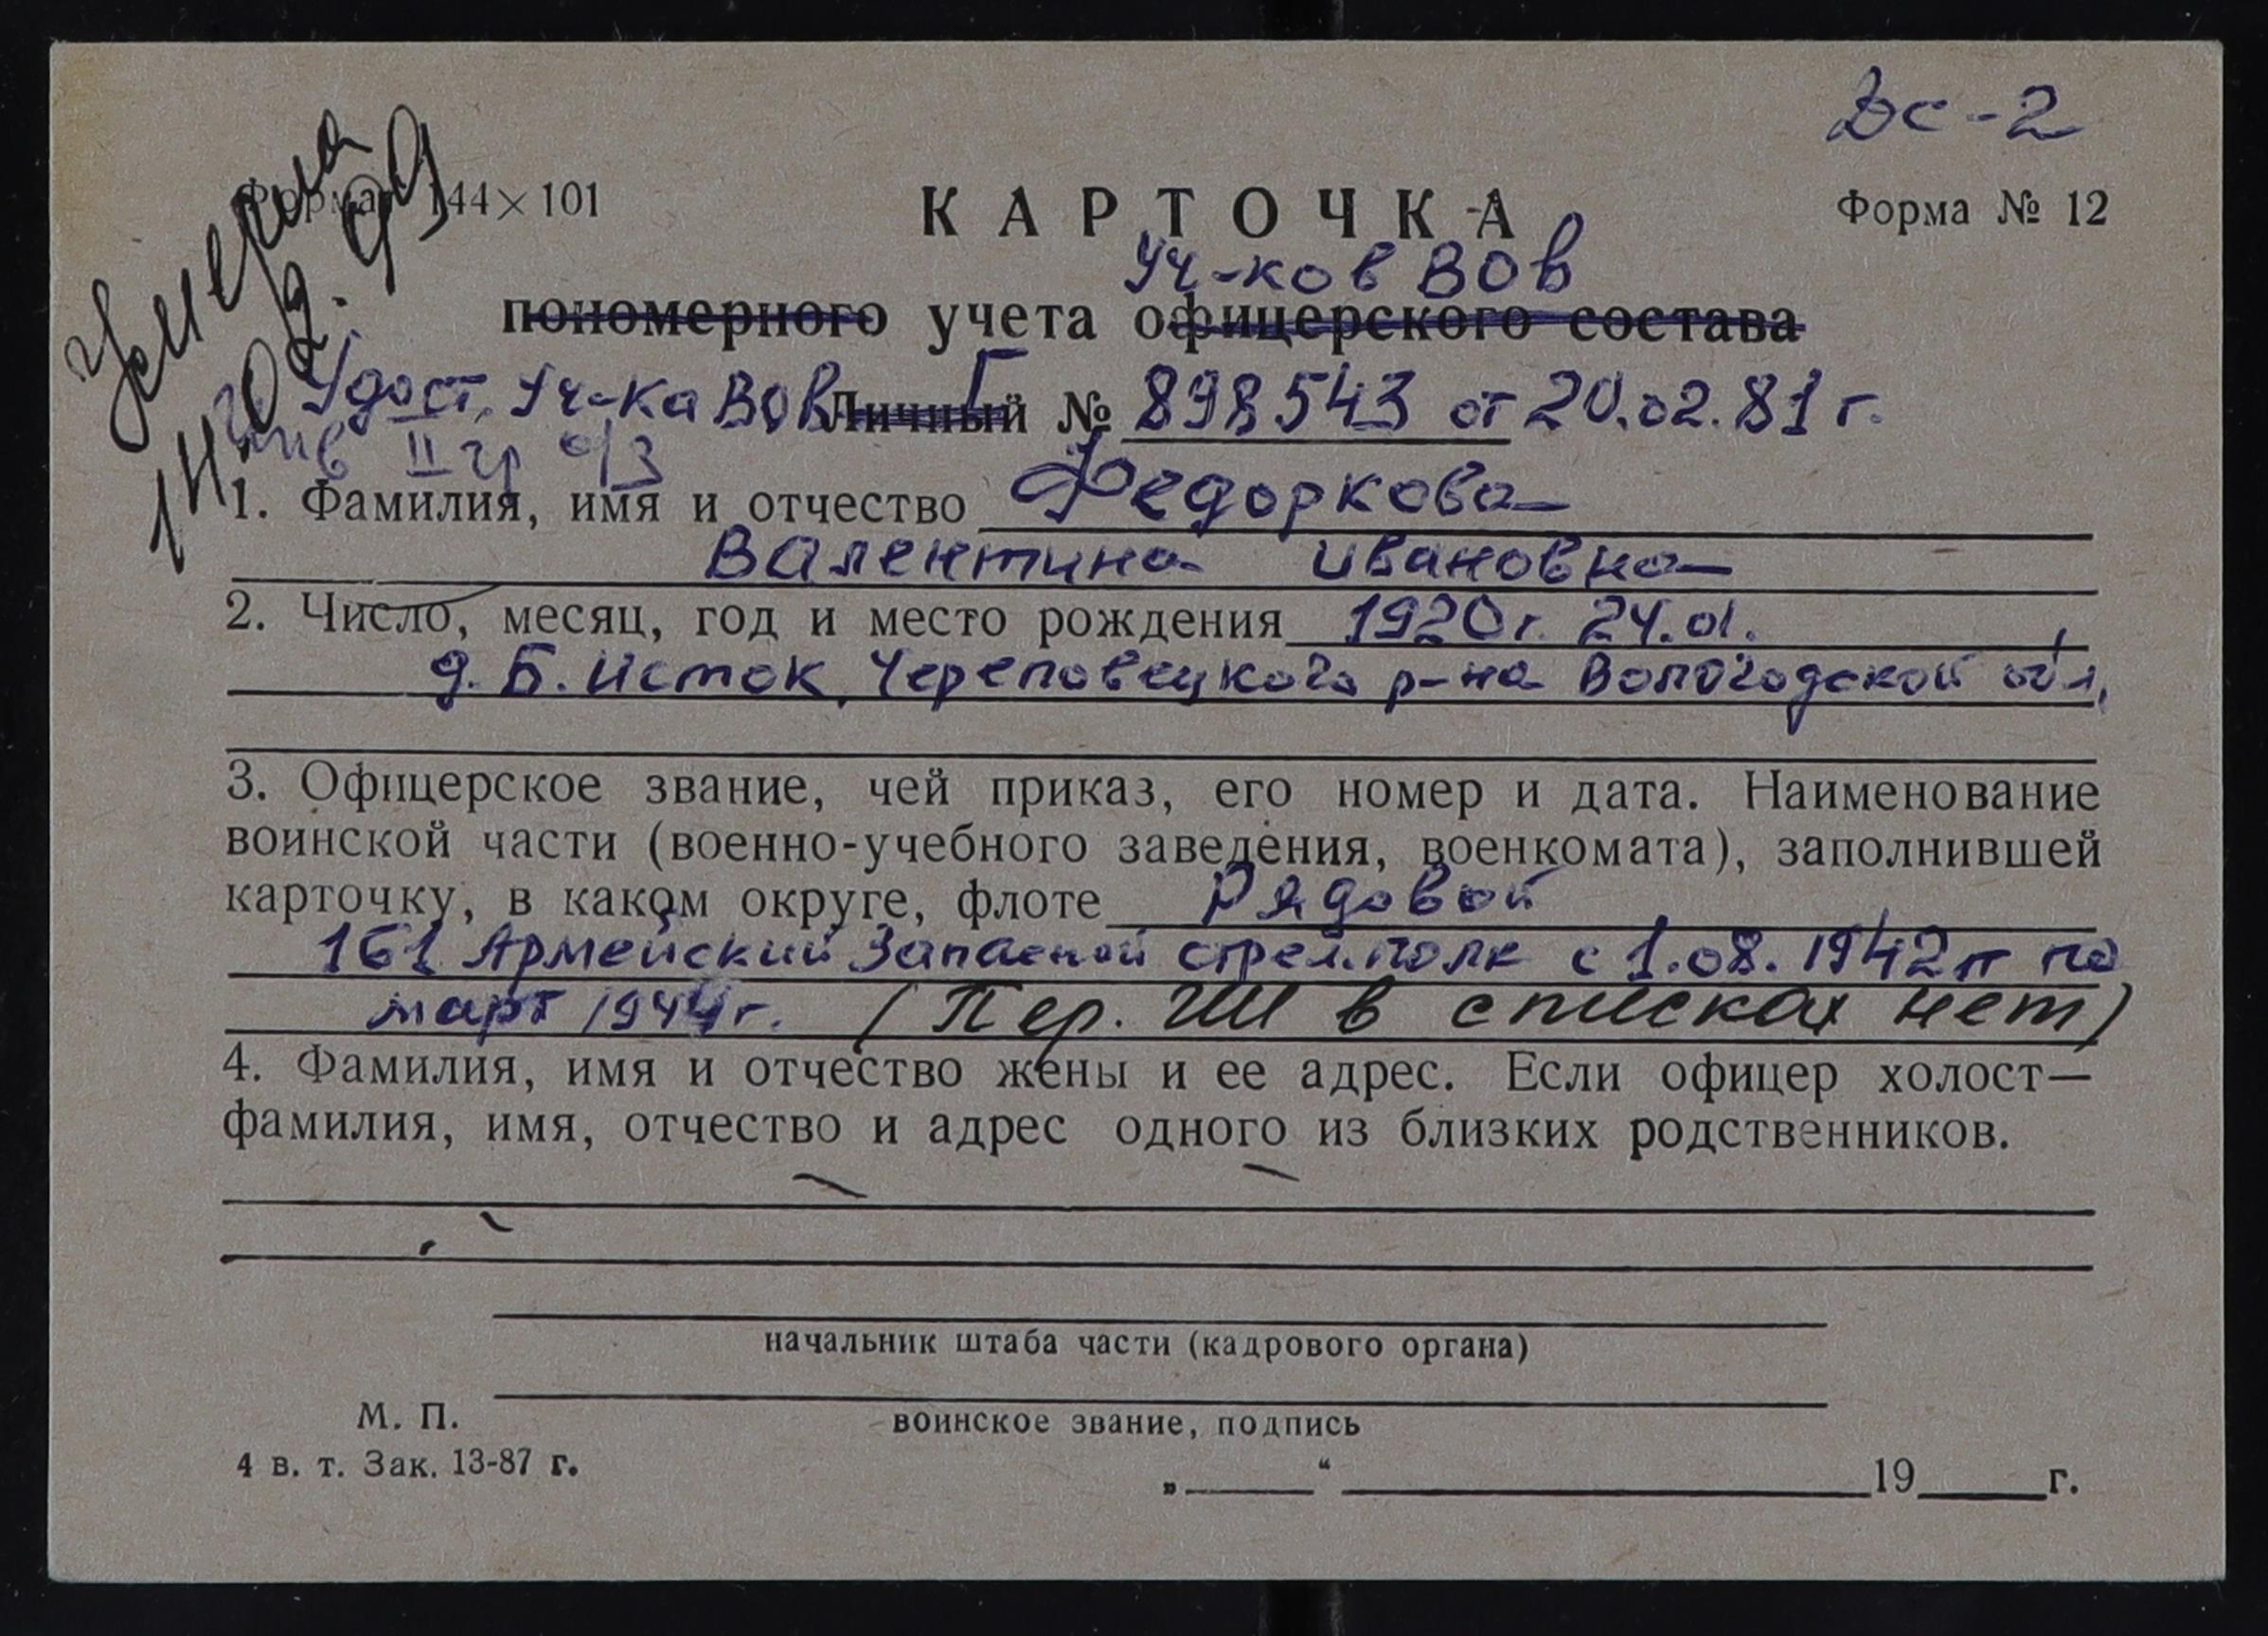 Вс-2
Формат 144×101
КАРТОЧКА
Форма № 12
Умерла
14.02.99
Уч-ков ВОв
пономерного учета офицерского состава
Удост. Уч-ка ВОв Личный Г № 898543 от 20.02.81 г.
инв II гр о/з
1. Фамилия, имя и отчество Федоркова
Валентина Ивановна
2. Число, месяц, год и место рождения 1920 г. 24.01.,
д. Б. Исток, Череповецкого р-на Вологодской обл,
3. Офицерское звание, чей приказ, его номер и дата. Наименование
воинской части (военно-учебного заведения, военкомата), заполнившей
карточку, в каком округе, флоте Рядовой
161 Армейский Запасной стрел. полк с 1.08.1942 г по
март 1944 г. (Пер. ГШ в списках нет)
4. Фамилия, имя и отчество жены и ее адрес. Если офицер холост—
фамилия, имя, отчество и адрес одного из близких родственников.
начальник штаба части (кадрового органа)
М. П.
воинское звание, подпись
4 в. т. Зак. 13-87 г.
„ “ 19 г.